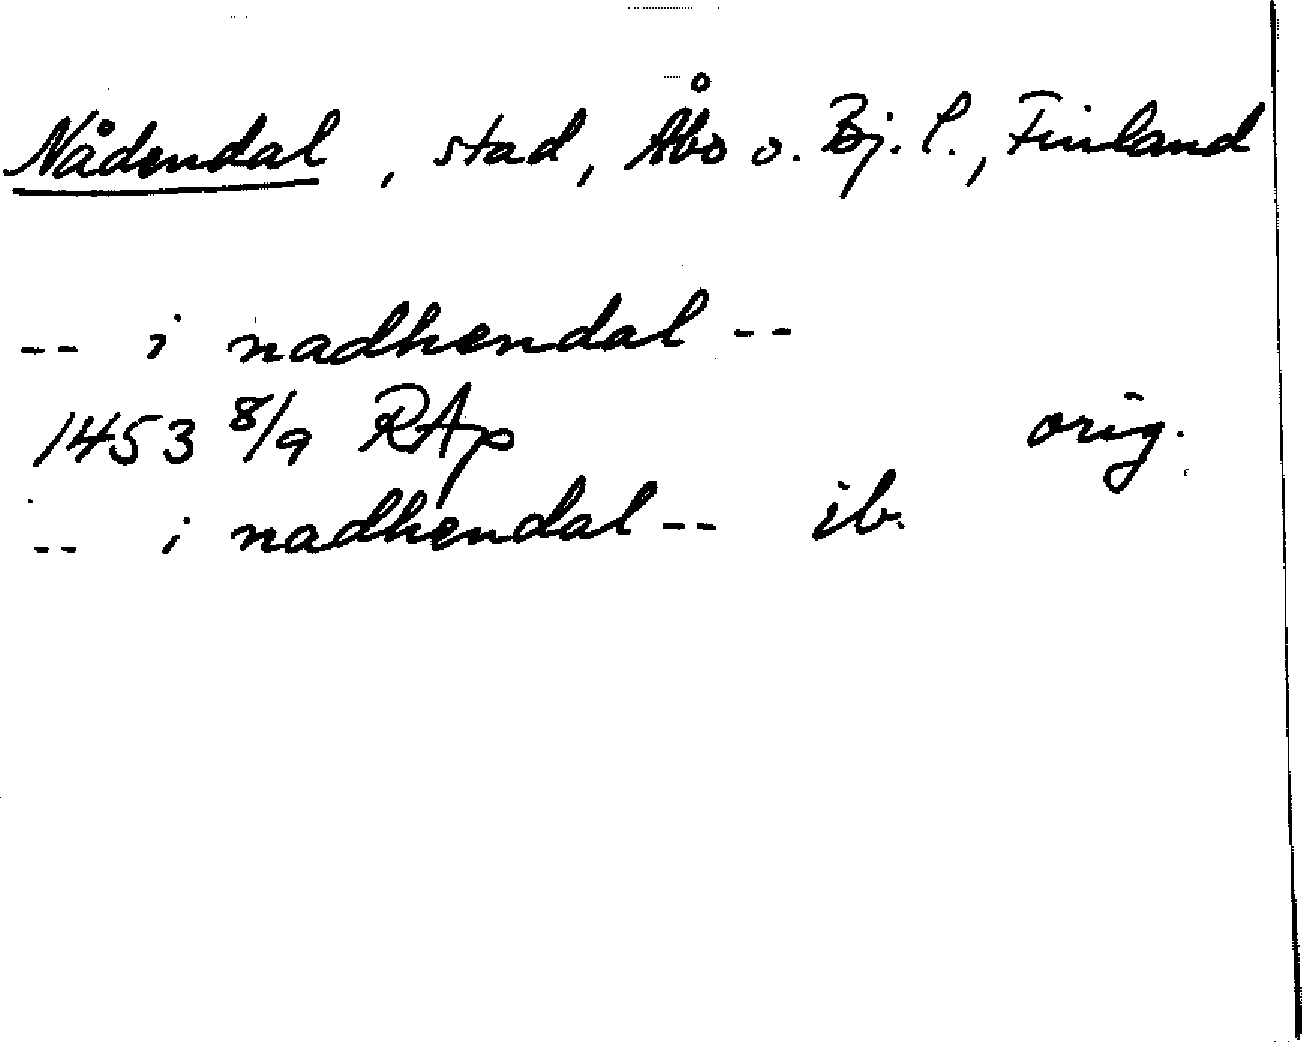 Nådendal, stad, Åbo o. Bj. l., Finland
-- i nadhendal --
1453 8/9 RAp orig.
-- i nadhendal -- ib.